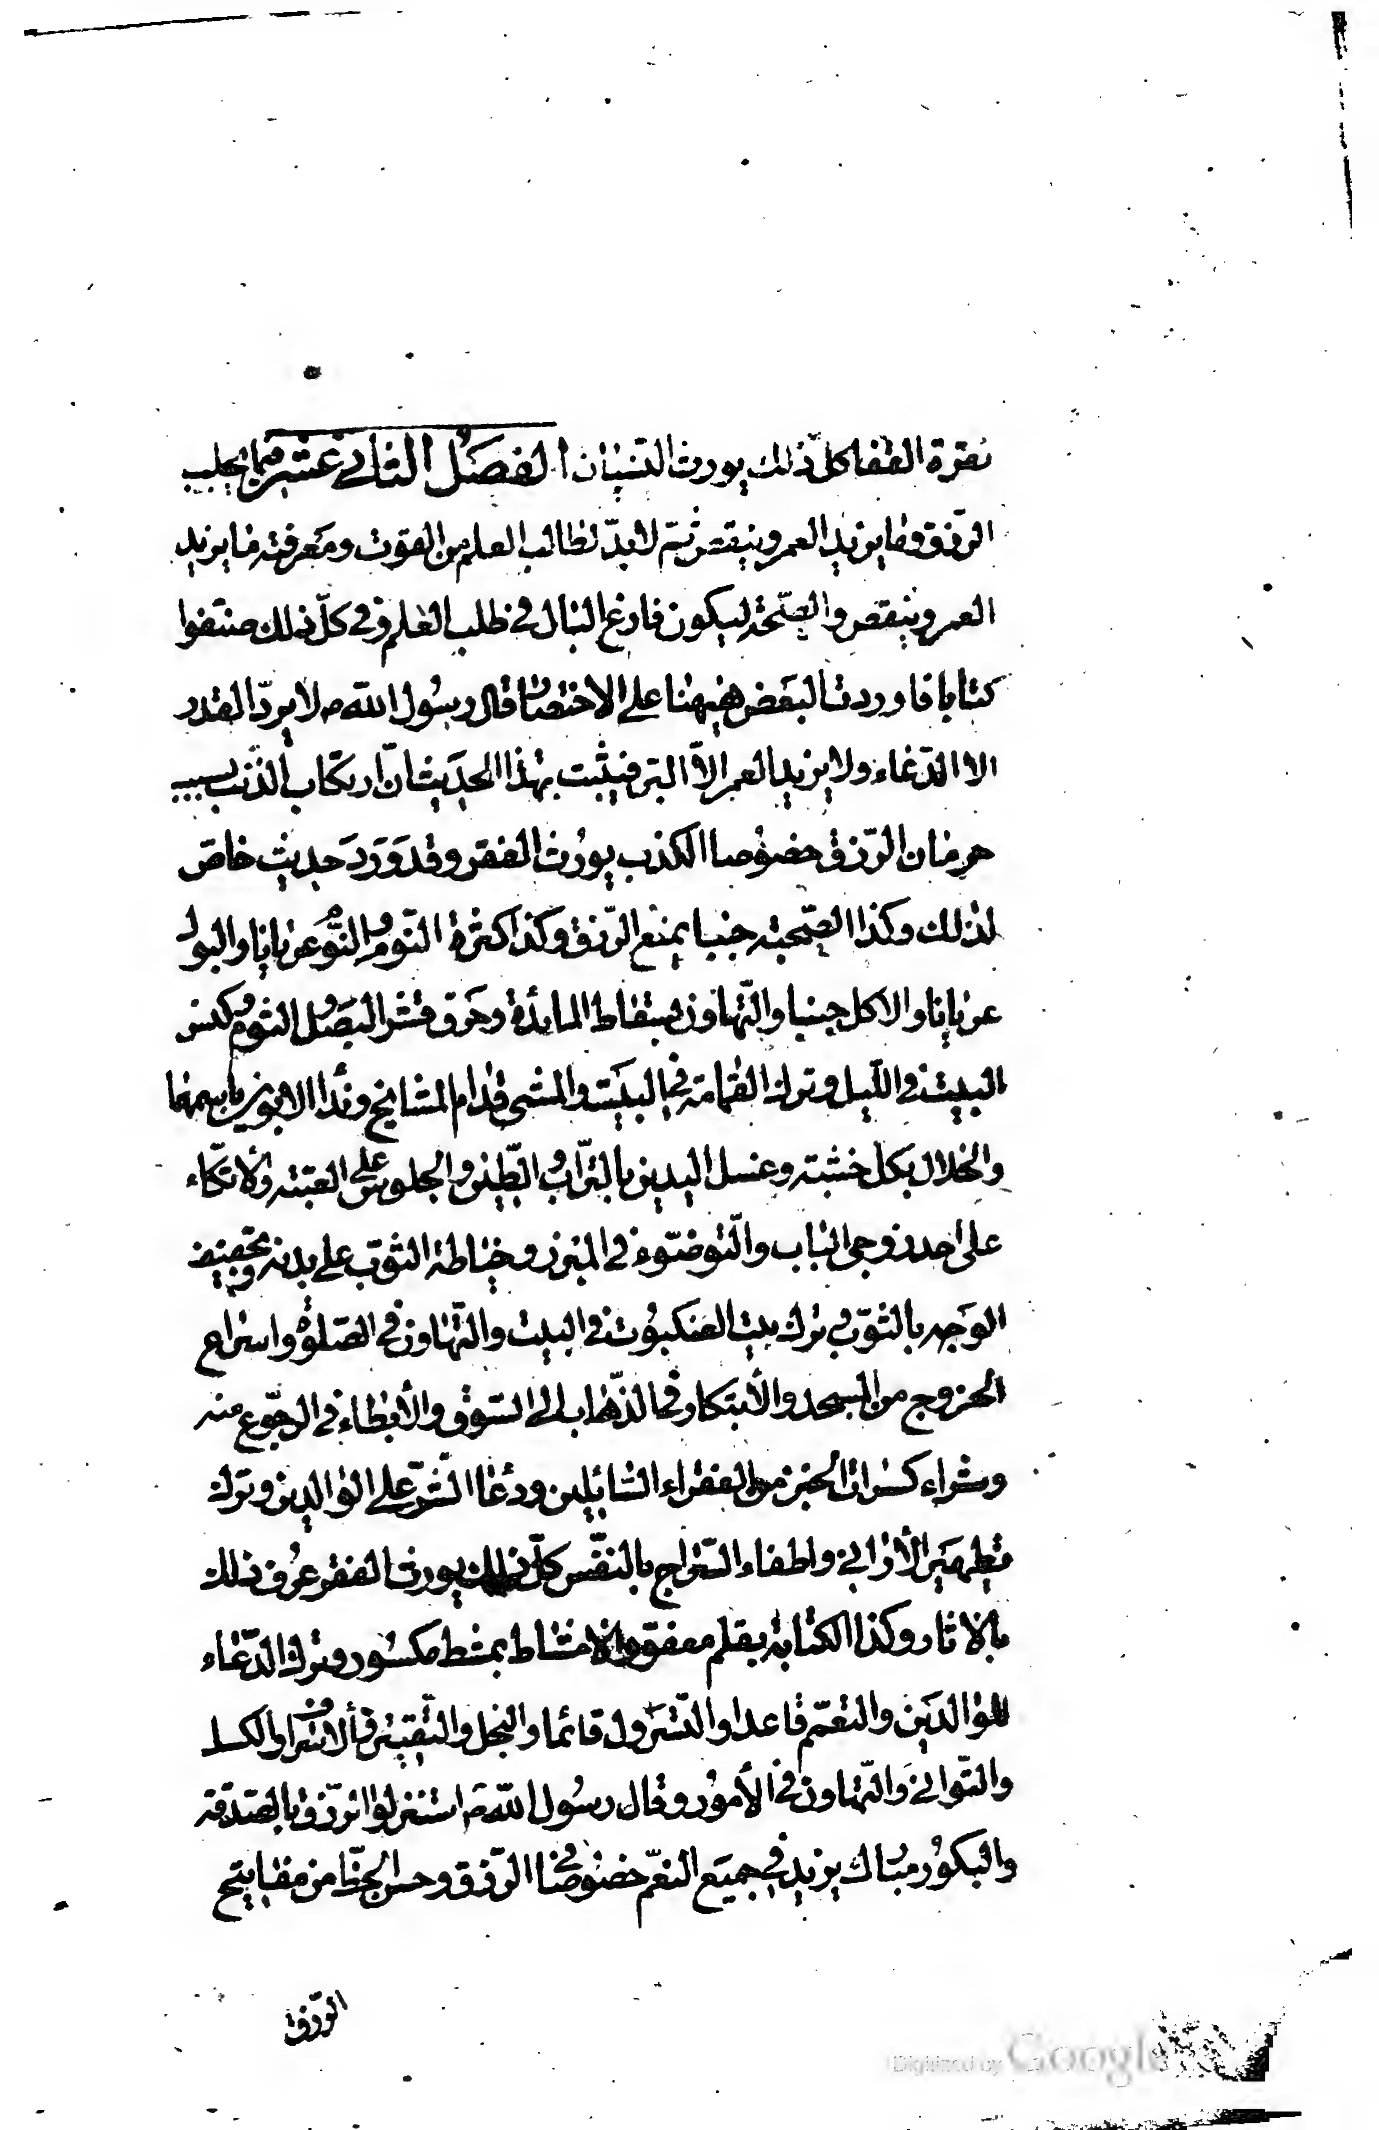 نقرة القفا كل ذلك يورث النسيان الفصل الثاني عشر فيما يجلب
الرّزق وما يزيد العمر وينقص ثمّ لابدّ لطالب العلم من القوت ومعرفته ما يزيد
العمر وينقص والصّحّة ليكون فارغ البال في طلب العلم وفي كلّ ذلك صنّفوا
كتابا فاوردنا لبعض هيهنا على الاختصار قال رسول اللّه ص لا يردّ القدر
الا الدّعاء ولا يزيد العمر الاّ البر فيثبت بهذا الحديث انّ ارتكاب الذّنب بسبب
حرمان الرّزق خصوصا الكذب يورث الفقر وقد وَرَدَ حديث خاصّ
لذلك وكذا الصّحبته جنبا يمنع الرّزق وكذا كثرة النّوم والنّوم عريانا والبول
عريانا والاكل جنبا والتّهاون بسقاط المائدة وحرق قشر البصل والثوم وكنس
البيت في اللّيل وترك القمامة في البيت والمشي قدام المشايخ ونداء الابوين باسمهما
والخلال بكل خشبته وغسل اليدين بالتّراب والطّين والجلوس على العتبته والاتكّاء
على احد زوجي الباب والتّوضّوء في المبرز وخياطة الثوب على بدنه وتجفيف
الوجه بالثوب وترك بيت العنكبوت في البيت والتّهاون في الصّلوة واسراع
الخروج من المسجد والأبتكار في الذّهاب الى السّوق والأبطاء في الرجوع منه
وشراء كسرات الخبز من الفقراء السّايلين ودعاء الشّرّ على الوالدين وترك
تطهير الأواني واطفاء السّراج بالنفّس كلّ ذلك يورث الفقر عرف ذلك
بالاثار وكذا الكتابة بقلم معقود والامتشاط بمشط مكسور وترك الدّعاء
للوالدين والتعمّم قاعدا والتّسرول قائما والبخل والتّقتير والاسراف والكسل
والتّواني والتّهاون في الأمور وقال رسول اللّه ص استنزلوا الرّزق بالصّدقة
والبكور مبارك يزيد في جميع النعّم خصوصا في الرّزق وحسن الخطّ من مفاتيح
الرّزق
Digitized by Google